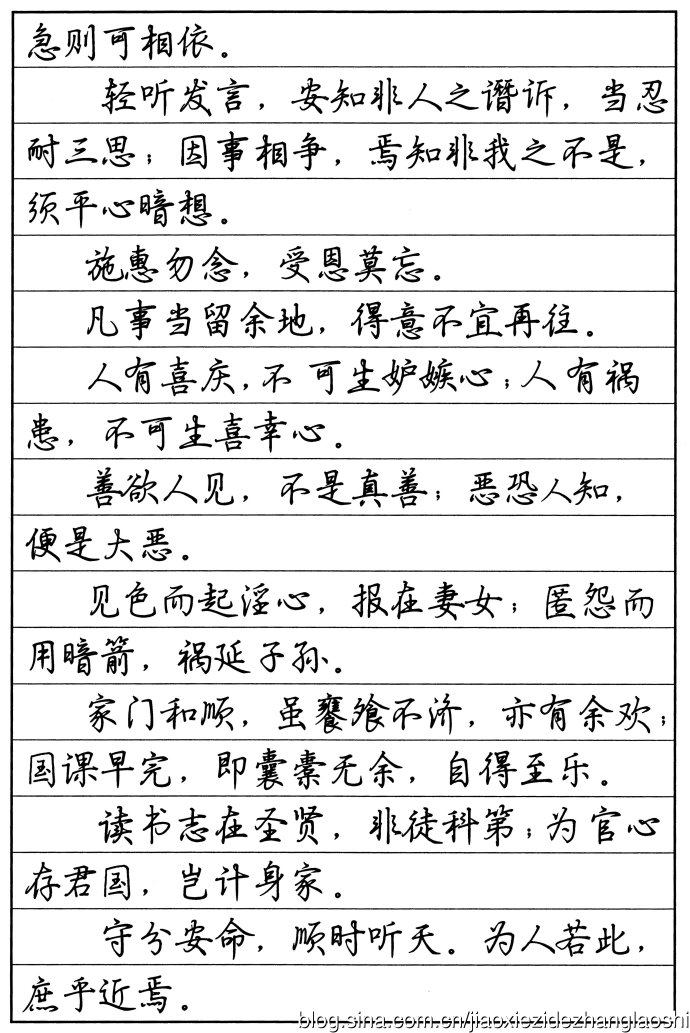 急则可相依。
轻听发言，安知非人之谮诉，当忍
耐三思；因事相争，焉知非我之不是，
须平心暗想。
施惠勿念，受恩莫忘。
凡事当留余地，得意不宜再往。
人有喜庆，不可生妒嫉心；人有祸
患，不可生喜幸心。
善欲人见，不是真善；恶恐人知，
便是大恶。
见色而起淫心，报在妻女；匿怨而
用暗箭，祸延子孙。
家门和顺，虽饔飧不济，亦有余欢；
国课早完，即囊橐无余，自得至乐。
读书志在圣贤，非徒科第；为官心
存君国，岂计身家。
守分安命，顺时听天。为人若此，
庶乎近焉。
blog.sina.com.cn/jiaoxiezidezhanglaoshi